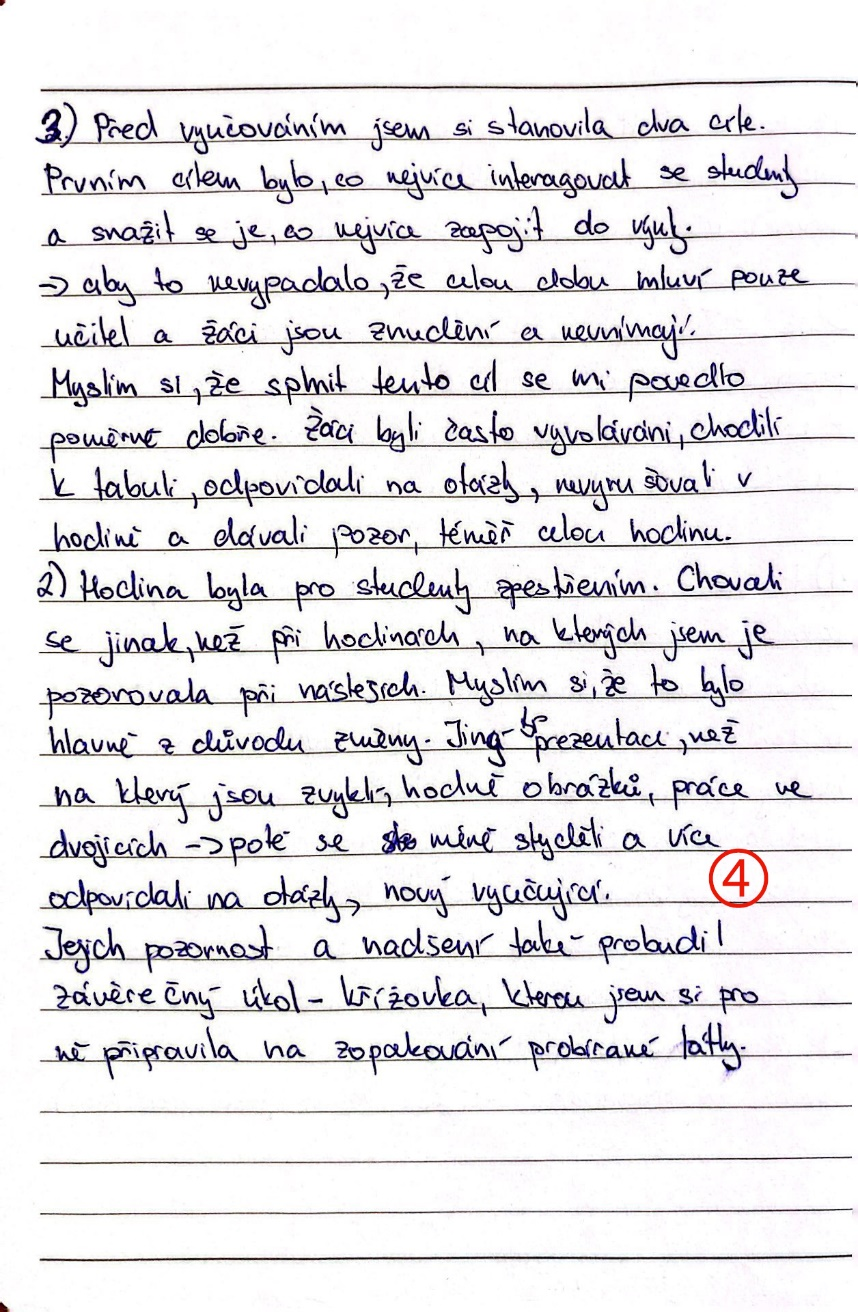 3.) Před vyučováním jsem si stanovila dva cíle.
Prvním cílem bylo, co nejvíce interagovat se studenty
a snažit se je, co nejvíce zapojit do výuky.
-> aby to nevypadalo, že celou dobu mluví pouze
učitel a žáci jsou znudění a nevnímají.
Myslím si, že splnit tento cíl se mi povedlo
poměrně dobře. Žáci byli často vyvoláváni, chodili
k tabuli, odpovídali na otázky, nevyrušovali v
hodině a dávali pozor, téměř celou hodinu.
2) Hodina byla pro studenty zpestřením. Chovali
se jinak, než při hodinách, na kterých jsem je
pozorovala při náslesích. Myslím si, že to bylo
hlavně z důvodu změny. Jiný typ prezentace, než
na který jsou zvyklí, hodně obrázků, práce ve
dvojicích -> poté se méně styděli a více
odpovídali na otázky, nový vyučující.
④
Jejich pozornost a nadšení také probudil
závěrečný úkol - křížovka, kterou jsem si pro
ně připravila na zopakování probírané látky.